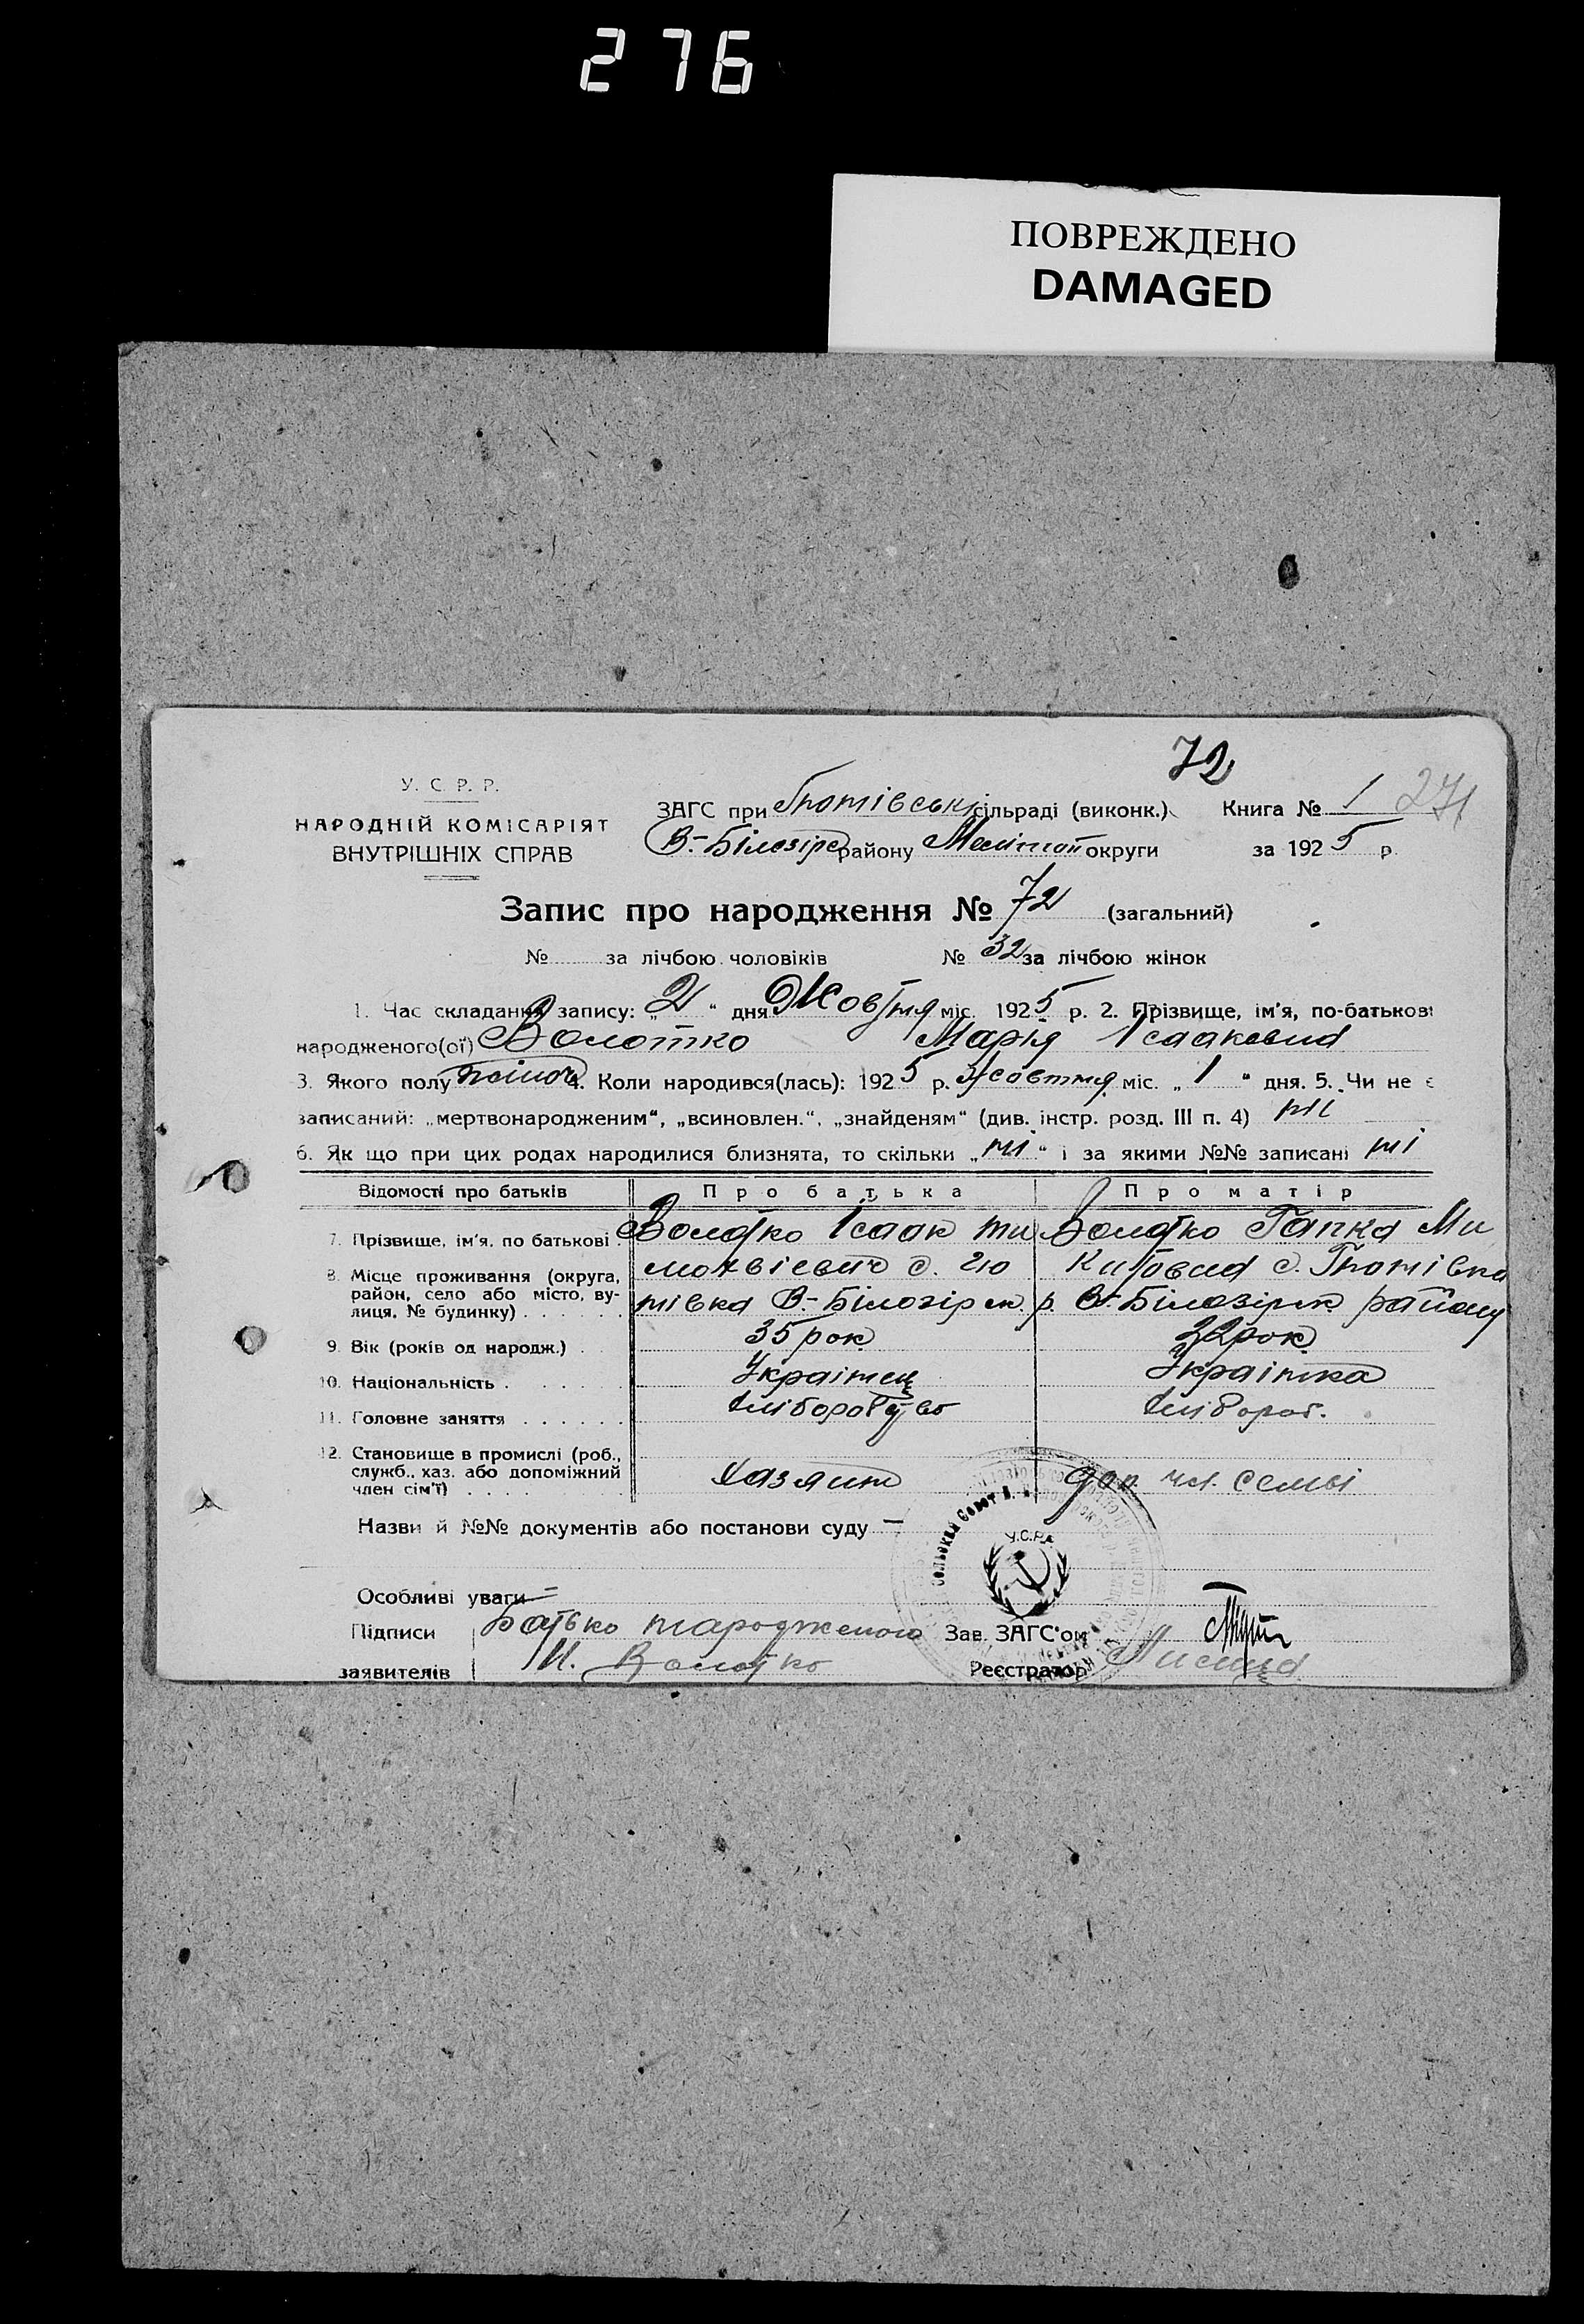 276
ПОВРЕЖДЕНО
DAMAGED
72
У. С. Р. Р.
НАРОДНІЙ КОМІСАРІЯТ
ВНУТРІШНІХ СПРАВ
ЗАГС при Гнотівські сільраді (виконк.) Книга № 1 271
В.-Білозірс району Мелітоп округи за 1925 р.
Запис про народження № 72 (загальний)
№ за лічбою чоловіків № 32 за лічбою жінок
1. Час складання запису: „2“ дня Жовтня міс. 1925 р. 2. Прізвище, ім'я, по-батькові
народженого(ої) Волотко Марія Ісааковна
3. Якого полу жіноч 4. Коли народився(лась): 1925 р. Жовтня міс. „1“ дня. 5. Чи не є
записаний: „мертвонародженим“, „всиновлен.“, „знайденям“ (див. інстр. розд. III п. 4) ні
6. Як що при цих родах народилися близнята, то скільки „ні“ і за якими №№ записані ні
Відомості про батьків Про батька Про матір
7. Прізвище, ім'я, по батькові Волотко Ісаак Ти Волотко Гапка Ми
8. Місце проживання (округа, мохвієвич с. Гно китовна с. Гнотівка
район, село або місто, ву-
лиця, № будинку) тівка В.-Білозірск. р. В-Білозірск. району
9. Вік (років од народж.) 35 рок 32 рок
10. Національність Українец Українка
11. Головне заняття Хліборобство Хлібороб.
12. Становище в промислі (роб.,
служб., хаз. або допоміжний
член сім'ї) Хазяин доп. чл. семьі
Назви й №№ документів або постанови суду —
Сольский Совет
У.С.Р.Р.
Особливі уваги =
Підписи Батько народженого Зав. ЗАГС'ом
заявителів И. Волотко Реєстратор